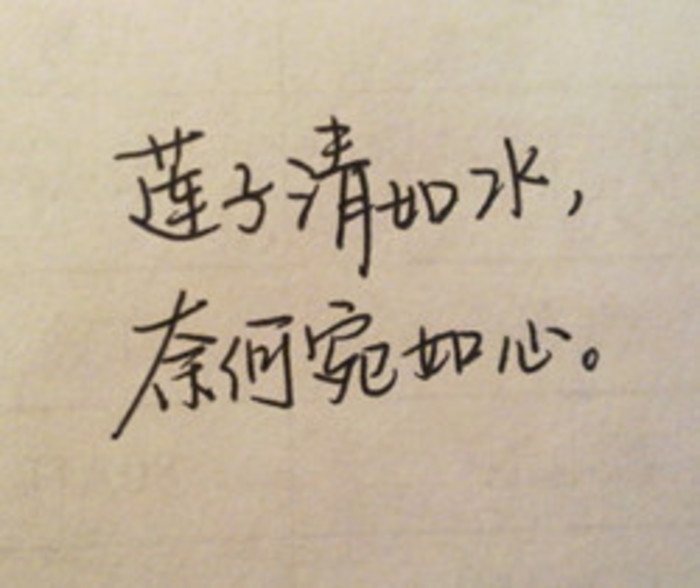 莲子清如水，
奈何宛如心。